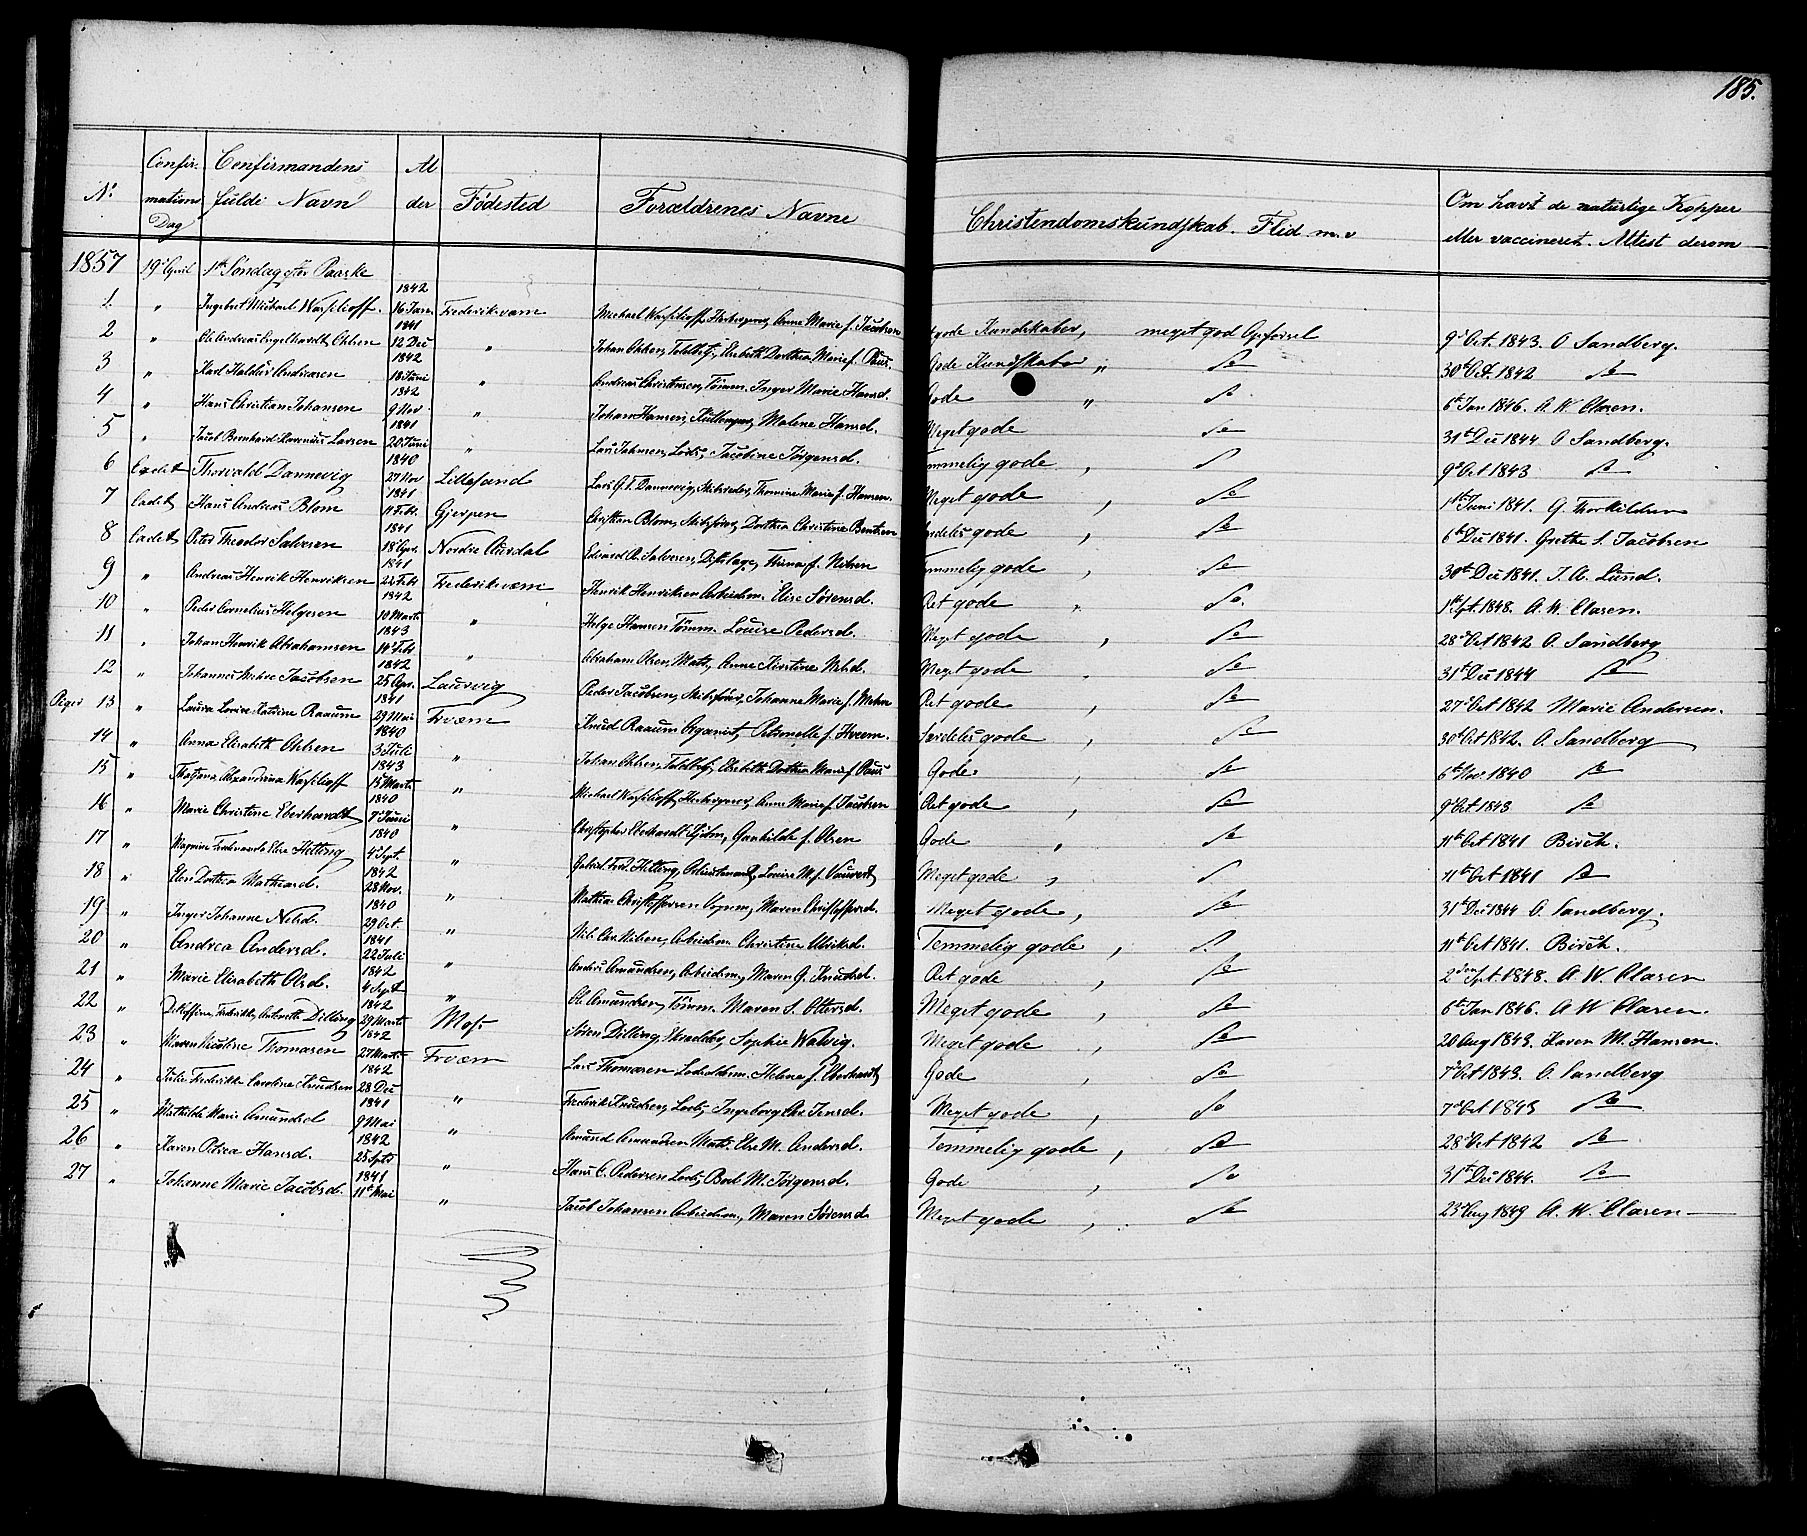 185.
No Confirmations Dag Confirmandens fulde Navn Alder Fødested Forældrenes Navne Christendomskundskab. Flid m.v Om havt de naturlige Kopper eller vaccineret. Attest derom
1857 19de April 1ste Søndag efter Paaske
1 " Ingebret Michael 1842 16 Jan. Frederiksværn Michael Anne Marie f. Jacobsen gode Kundskaber, meget god Opførsel 9de Oct. 1843. O Sandberg.
2 " Ole Andreas Engelhardt Ohlsen 1841 12 Dec " Johan Ohlsen, Toldbetj, Elisabeth Dorthea Marie f. Gode Kundskaber " do 30te Oct. 1842 do
3 " Karl Haldur Andreasen 1842 18 Juni " Andreas Christensen, Tømm. Inger Marie Hansd. Gode " do 6te Jan 1846. A. W. Clasen.
4 " Hans Christian Johansen 1842 9 Nov " Johan Hansen, Malene Hansd. Meget gode do 31te Dec 1844. O Sandberg.
5 " Jacob Bernhard Larsen 1841 20 Juni " Lars Johnsen, Lods, Jacobine Jørgensd. Temmelig gode , do 9de Oct 1843 do
6 Cadet Thorvald Dannevig 1840 27 Nov Lillesand Lars G. T. Dannevig, Skibsreder, Thomine Marie f. Hansen. Meget gode , do 1ste Juni 1841. G. Thorkildsen
7 Cadet Hans Andreas Blom 1841 11 Febr. Gjerpen Christian Blom, Skibsfører, Dorthea Christine Bentzen Særdeles gode , do 6te Dec 1841. Grethe S. Jacobsen
8 Cadet Peter Theodor Salvesen 1841 18 Apr. Nordre Edvard R. Salvesen, f. Nielsen Temmelig gode , do 30te Dec 1841. J. A. Lund.
9 " Andreas Henrik Henriksen 1841 22 Febr Frederiksværn Henrik Henriksen Arbeidsm. Elise Sørensd. Ret gode , do. 1ste Spt. 1848. A. W. Clasen.
10 " Peder Cornelius Helgesen 1842 10 Marts " Helge Hansen Tømm. Louise Pedersd. Meget gode , do 28de Oct 1842 O. Sandberg
11 " Johan Henrik Abrahamsen 1843 14 Febr " Abraham Olsen, Matr, Anne Kirstine Nilsd. Meget gode . do 31te Dec 1844 do
12 " Johannes Jacobsen 1842 25 Apr. Laurvig Peder Jacobsen, Skibsfører, Johanne Marie f. Ret gode , do 27de Oct 1842 Marie Andersen.
Piger 13 " Laura Lovise Katrine Raaum 1841 29 Mai Frværn Knud Raaum Organist, Petronelle f. Særdeles gode , do 30te Oct 1842. O. Sandberg
14 " Anna Elisabeth Ohlsen 1840 3 Juli " Johan Ohlsen, Toldbetj, Elisabeth Dorthea Marie f. Gode. , do 6te Nov 1840 do
15 " Alexandrina 1843 15 Marts " Michael Anne Marie f. Jacobsen Ret gode , do 9de Oct 1843 do
16 " Marie Christine Eberhardt 1840 7de Juni " Christopher Eberhardt Gunhilde f. Olsen Gode , do 11te Oct 1841 Birch.
17 " Else Hetting 1840 4 Spt. " Gabriel Ferd. Hetting, Louise M. f. Meget gode , do 11te Oct 1841 do
18 " Elen Dorthea Mathiasd. 1842 28 Nov. " Mathias Christoffersen Maren Christoffersd. Meget gode , do 31te Dec 1844 O. Sandberg.
19 " Inger Johanne Nilsd. 1840 29 Oct. " Nils Chr. Nilsen, Arbeidsm Christine Ulriksd. Temmelig gode , do. 11te Oct 1841. Birch.
20 " Andrea Andersd. 1841 22 Juli " Anders Amundsen, Arbeidsm, Maren G. Knudsd. Ret gode , do 2den Spt. 1848. A. W. Clasen
21 " Marie Elisabeth Olsd. 1842 4 Sept " Ole Amundsen, Tømm. Maren S. Ottersd. Meget gode , do 6te Jan 1846. A W Clasen.
22 " Fredrikke, Antonette Dilling 1842 29 Marts Moss Søren Dilling, Skrædder, Sophie Walvig. Meget gode , do 20 Aug 1843. Karen M. Hansen.
23 " Maren Nicoline Thomasen 1842 27 Marts Frværn Lars Thomasen Helene f. Eberhardt Gode , do 7de Oct 1843. O. Sandberg
24 " Julie Fredrikke Caroline Knudsen 1842 28 Dec " Frederik Knudsen, Lods, Ingeborg Jensd. Meget gode , do 7de Oct 1843 do
25 " Mathilde Marie Amundsd 1841 9 Mai " Amund Amundsen Matr. Else M. Andersd. Temmelig gode , do 28de Oct 1842 do
26 " Karen Petrea Hansd. 1842 25 Sptr " Hans C. Pedersen Lods, Bert M. Jørgensd. Gode , do 31te Dec 1844. do
27 " Johanne Marie Jacobsd. 1841 11te Mai " Jacob Johansen Arbeidsm., Maren Sørensd Meget gode , do 23de Aug 1849 A. W. Clasen